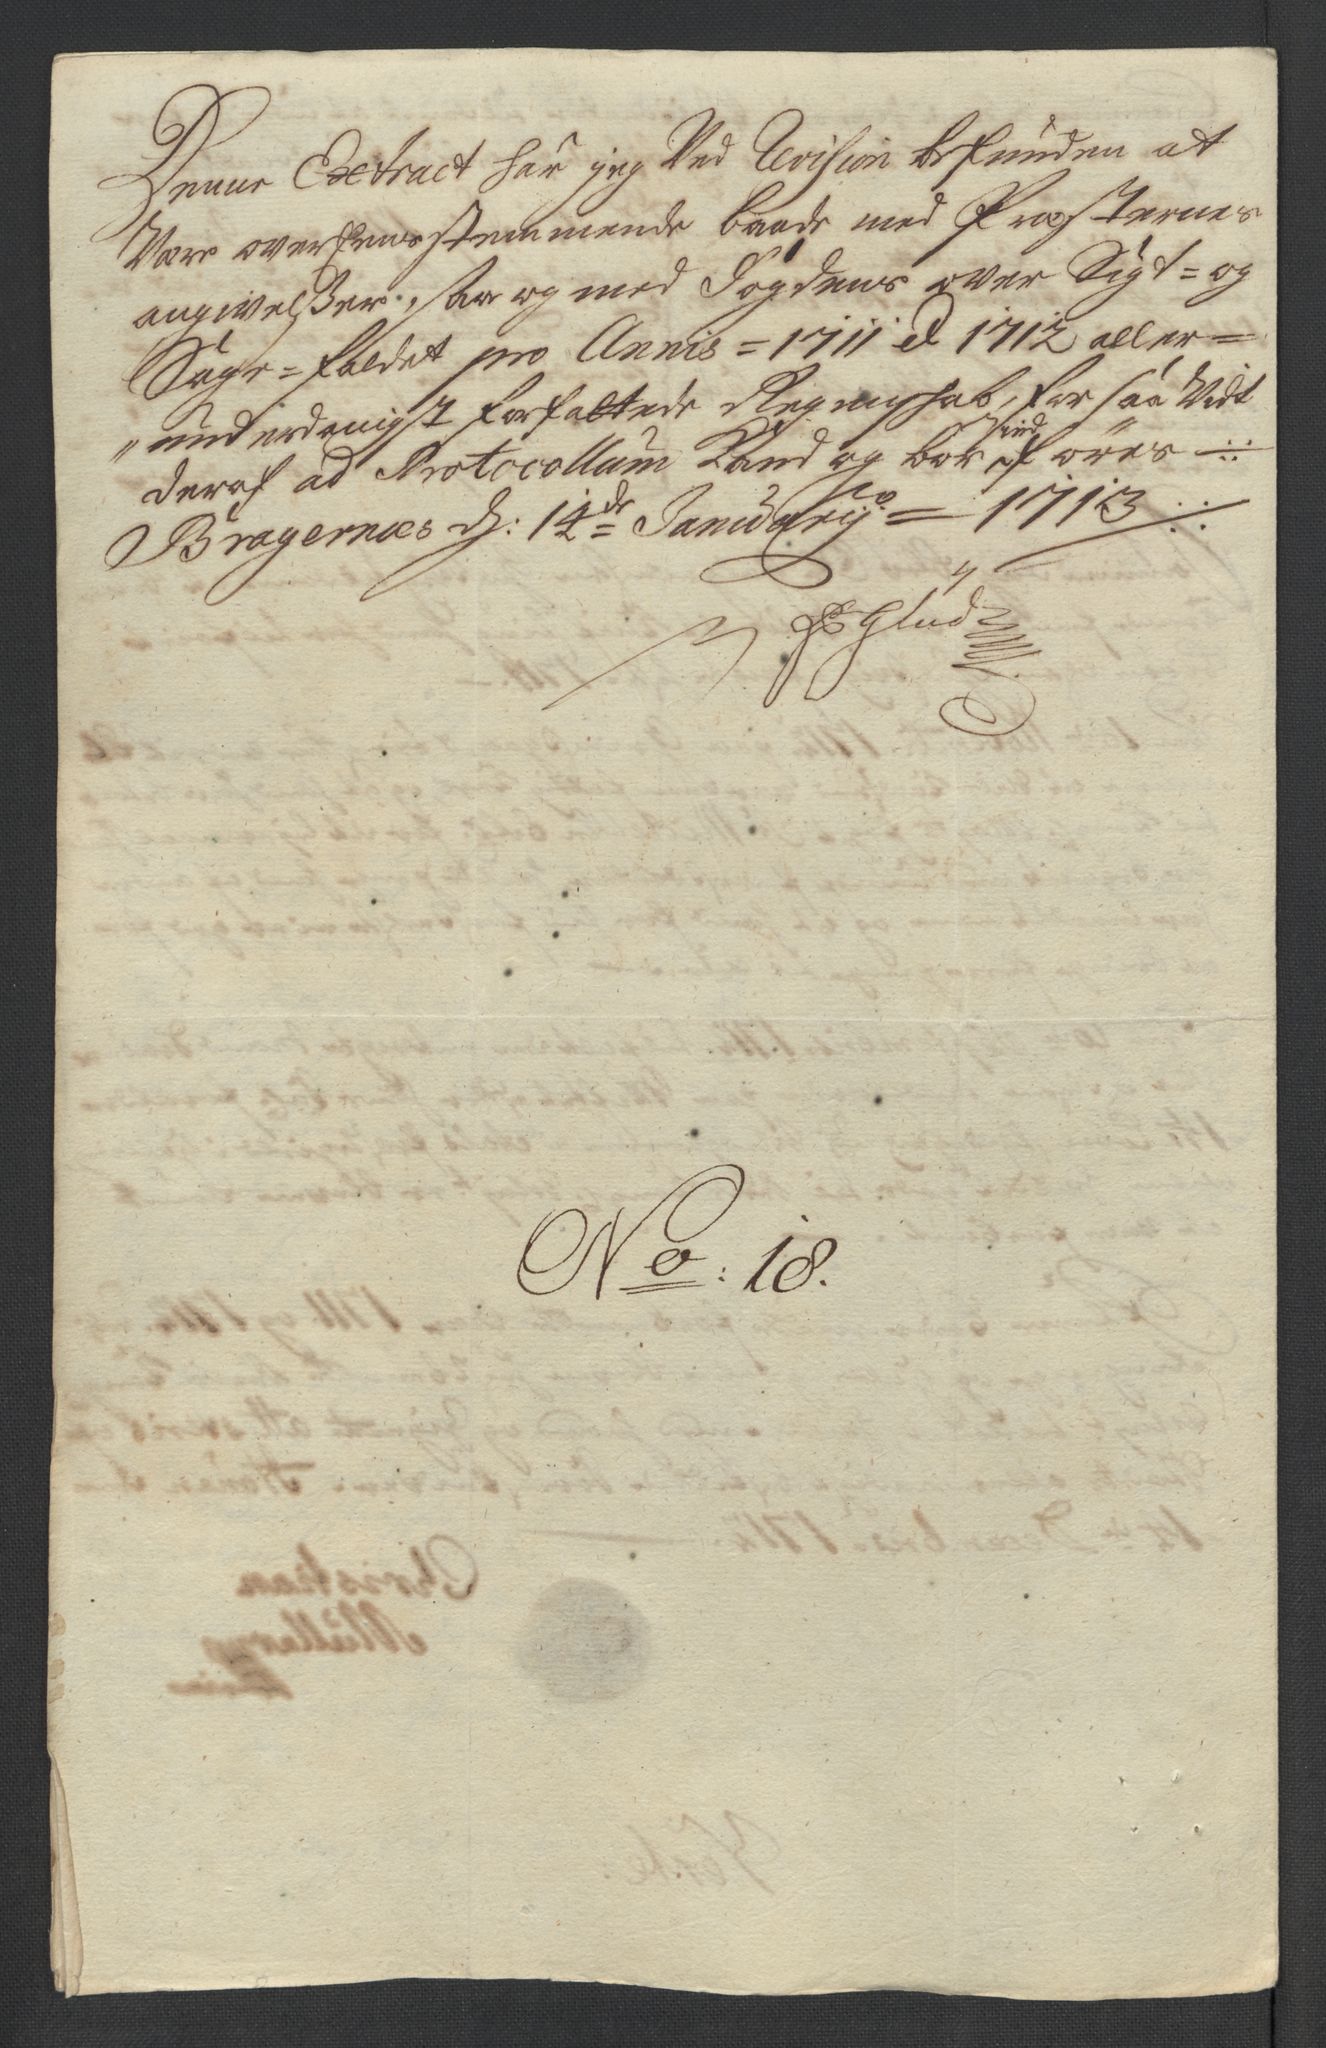 Denne Extract har jeg Ved Revision befunden at
Være overeensstemmende baade med Præsternes
angivelßer, saa og med Fogdens over Sigt= og
Sage=faldet pro Annis = 1711 et 1712 aller=
"underdanigst forfattede Regenskab, for saa Vidt
deraf ad Protocollum Kand og bør indføres
Bragernæs d: 12de Januarij = 1713
Glud
No: 18.